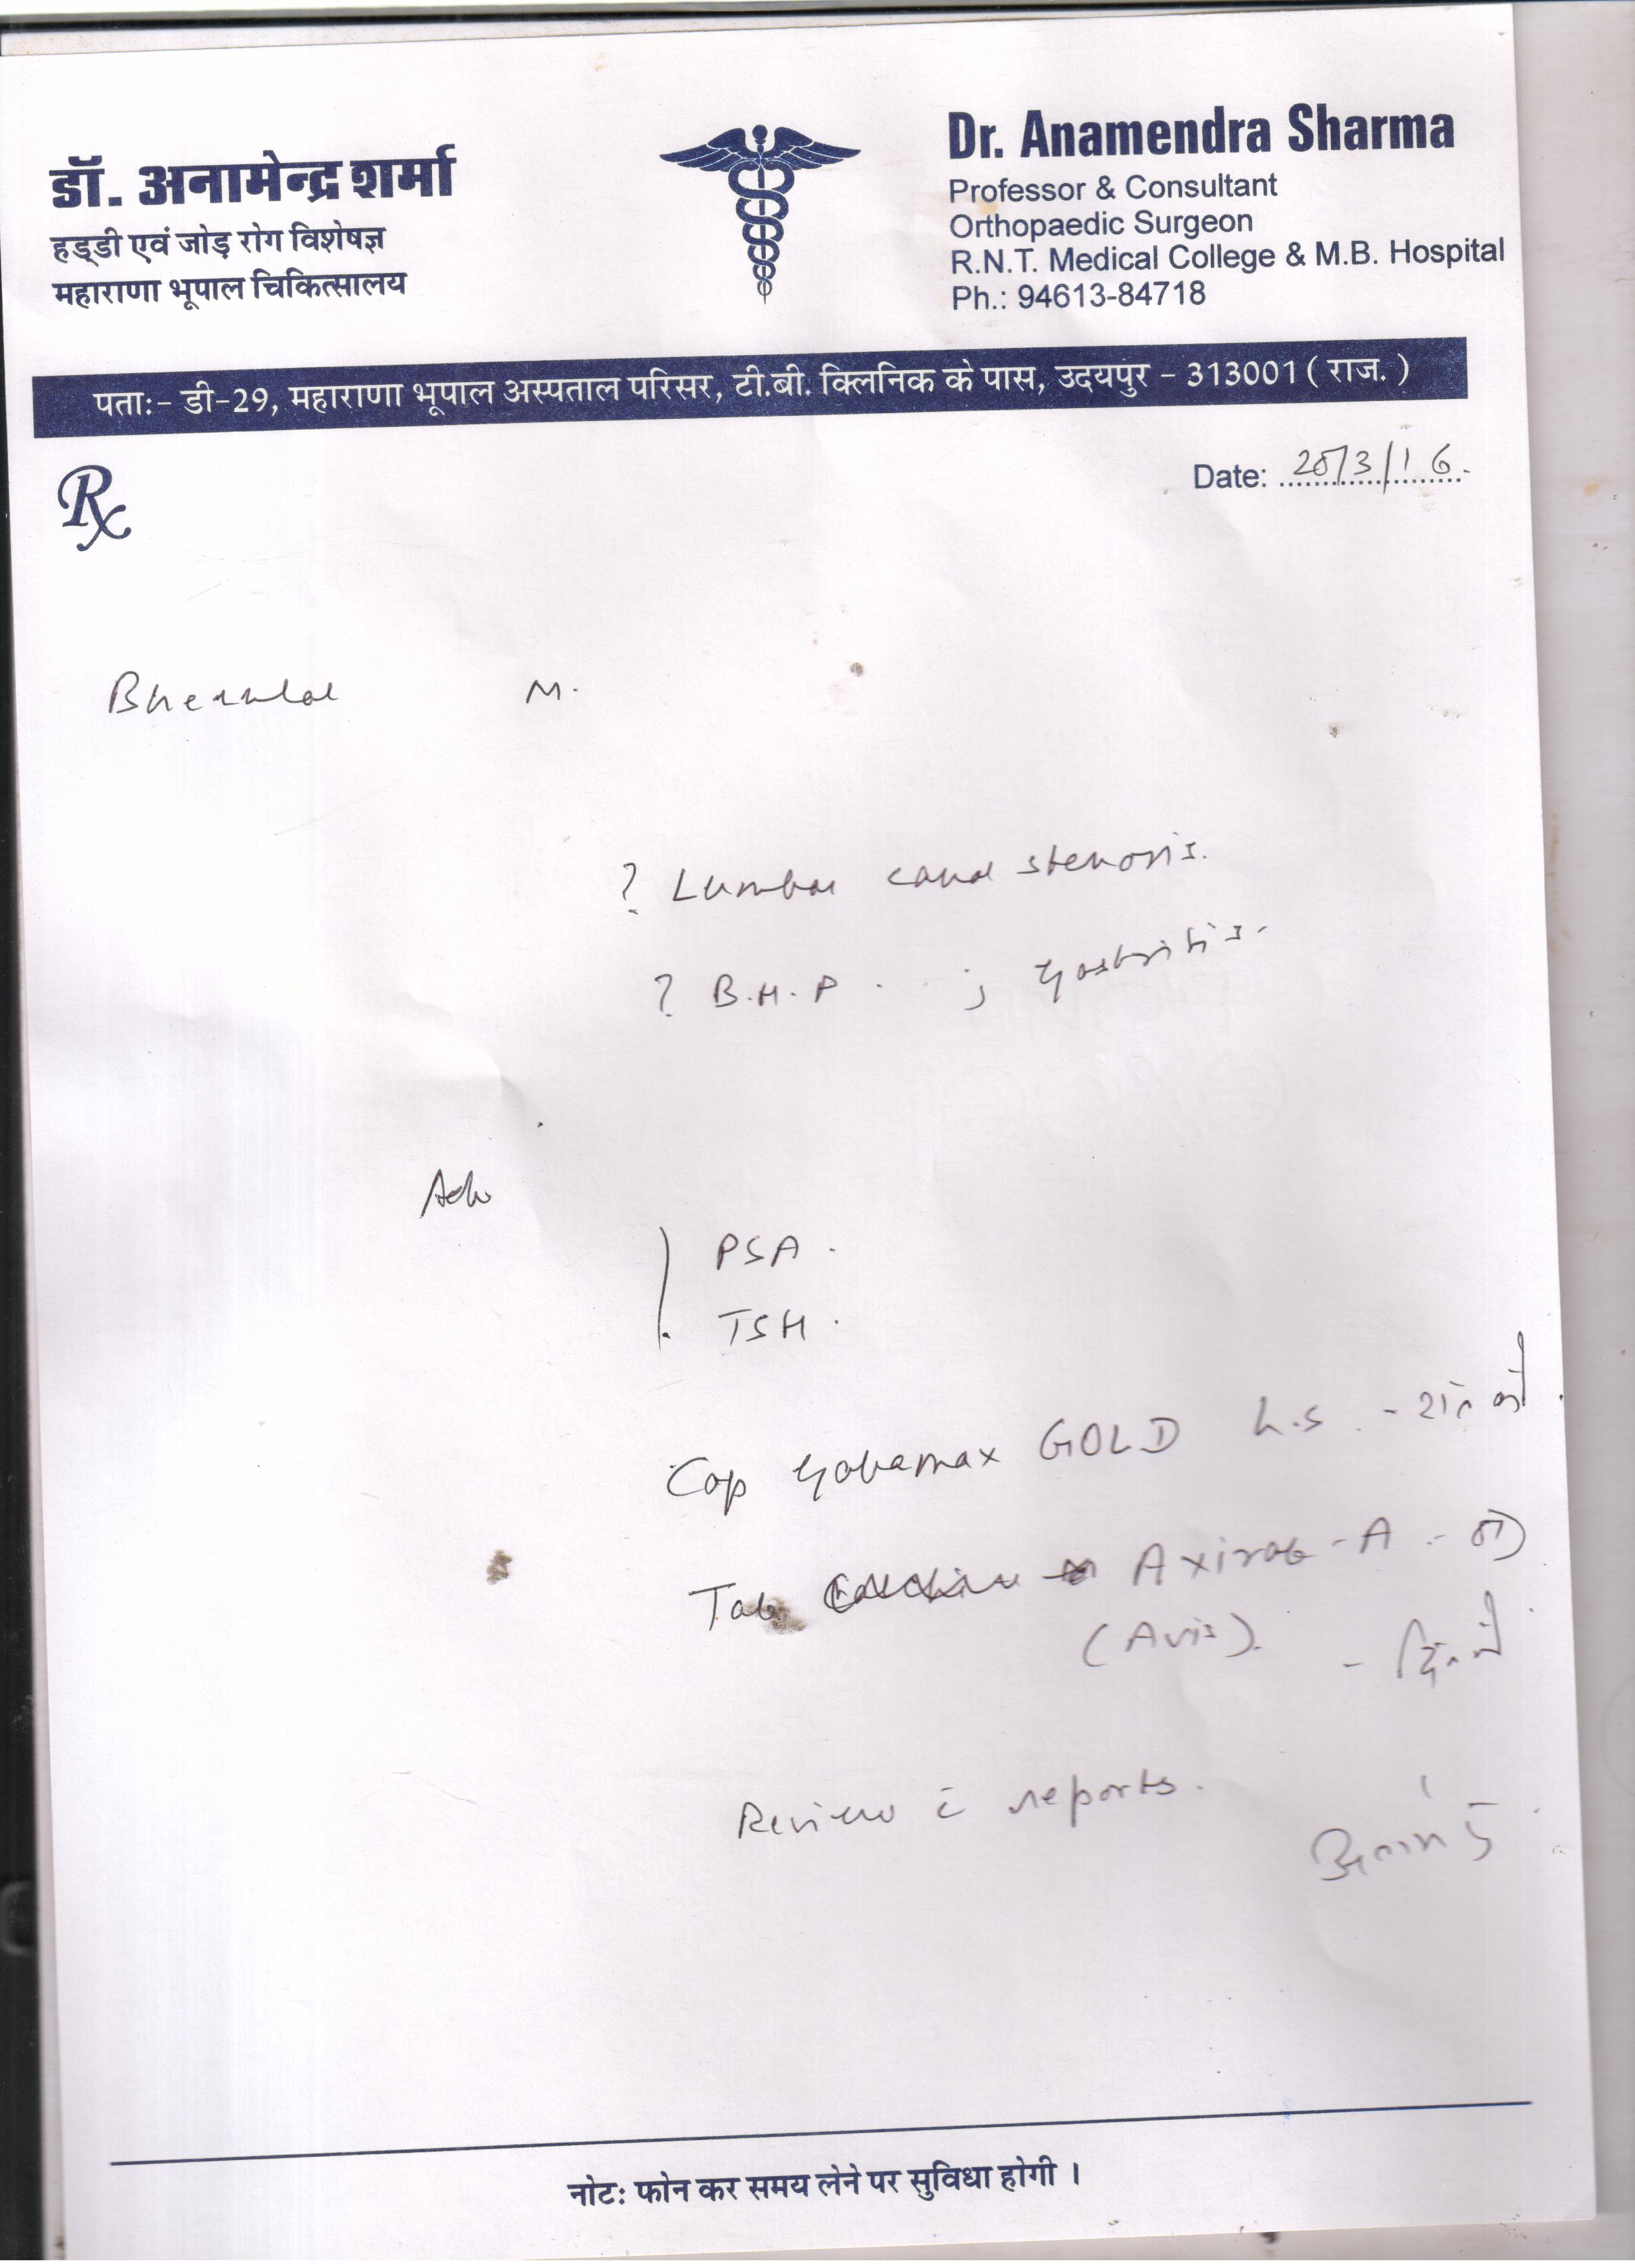 डॉ. अनामेन्द्र शर्मा
हड्डी एवं जोड़ रोग विशेषज्ञ
महाराणा भूपाल चिकित्सालय
Dr. Anamendra Sharma
Professor & Consultant
Orthopaedic Surgeon
R.N.T. Medical College & M.B. Hospital
Ph.: 94613-84718
पताः- डी-29, महाराणा भूपाल अस्पताल परिसर, टी.बी. क्लिनिक के पास, उदयपुर - 313001 ( राज. )
Rx
Date: /3/16.
M.
? Lumbar canal stenosis.
? B.H.P. ; gastritis.
Adv
PSA.
TSH.
Cap Gabamax GOLD h.s. - रात को.
Tab -A -
(Avis). -
Review c̄ reports.
नोटः फोन कर समय लेने पर सुविधा होगी ।